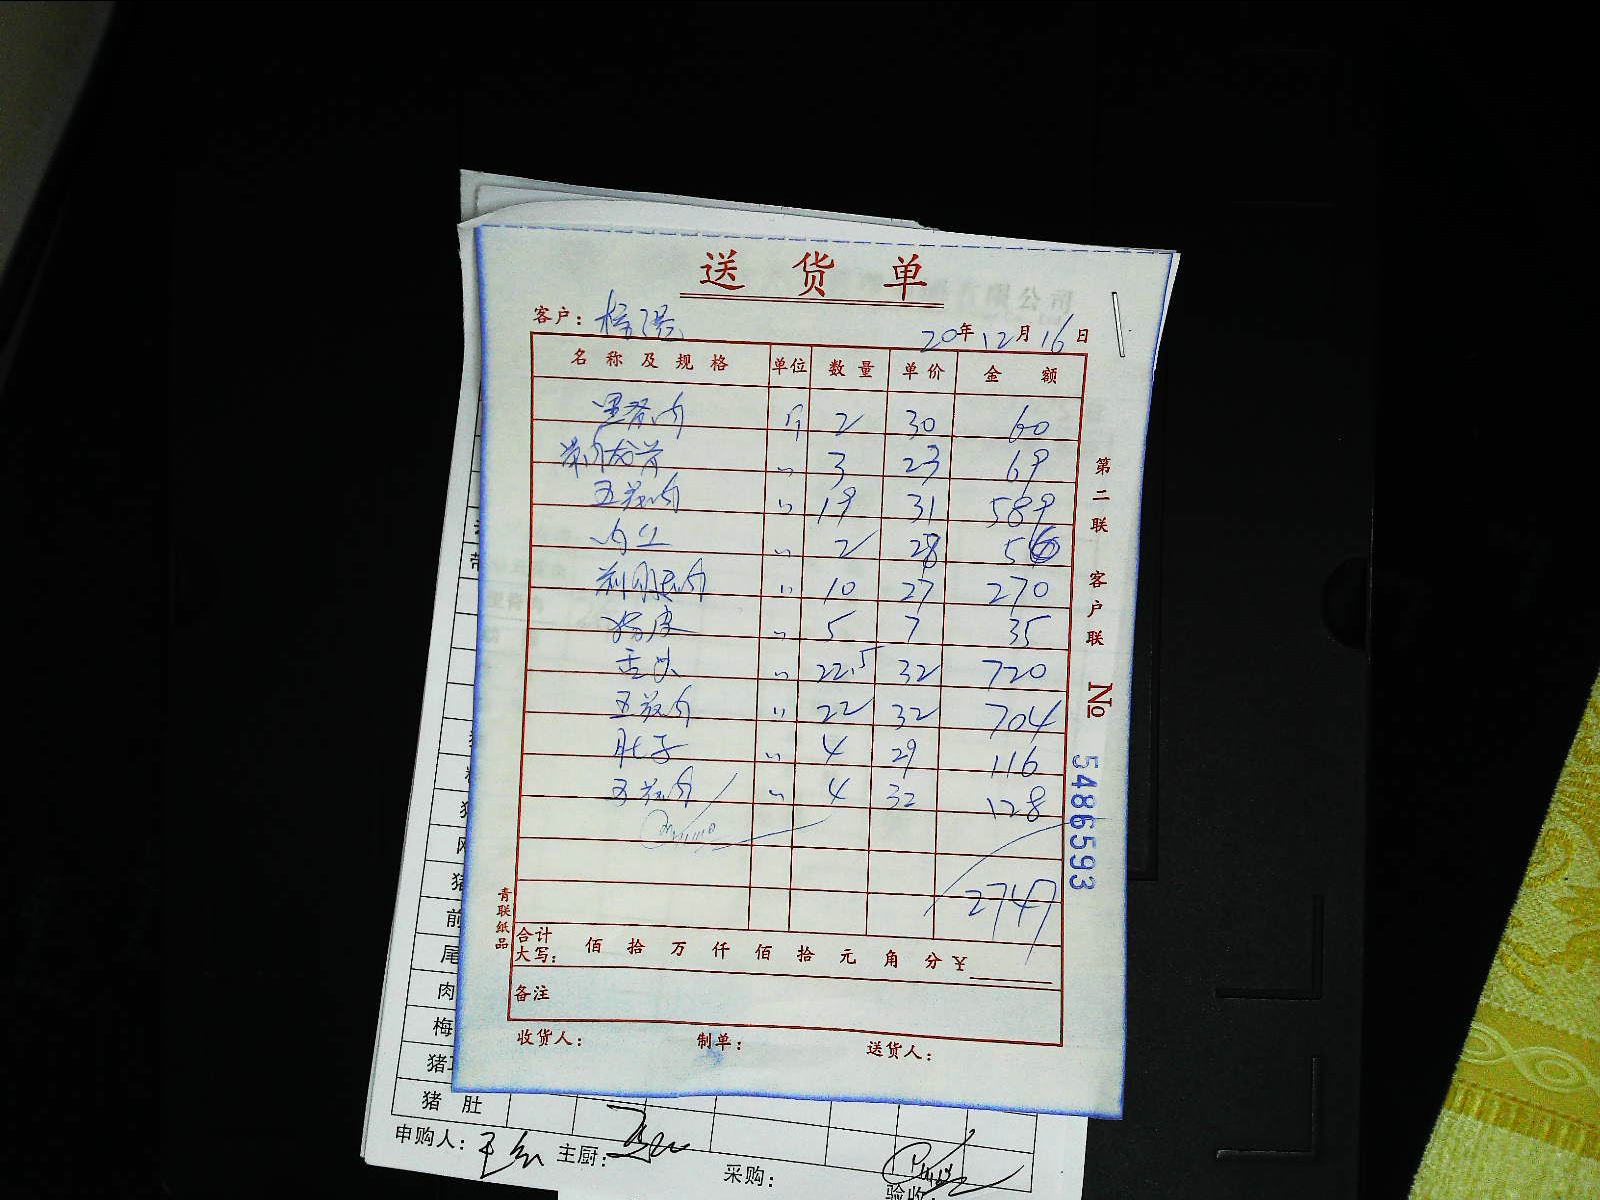 送货单
客户：
20年12月16日
名称及规格 单位 数量 单价 金额
里脊肉 斤 2 30 60
〃 3 23 69
五花肉 〃 19 31 589
〃 2 28 56
〃 10 27 270
〃 5 7 35
舌头 〃 22.5 32 720
五花肉 〃 22 32 704
肚子 〃 4 29 116
五花肉 〃 4 32 128
2747
合计大写： 佰 拾 万 仟 佰 拾 元 角 分 ¥
备注
收货人： 制单： 送货人：
第二联 客户联 № 5486593
青联纸品
前
尾
肉
梅
猪
猪肚
申购人： 主厨： 采购： 验收：